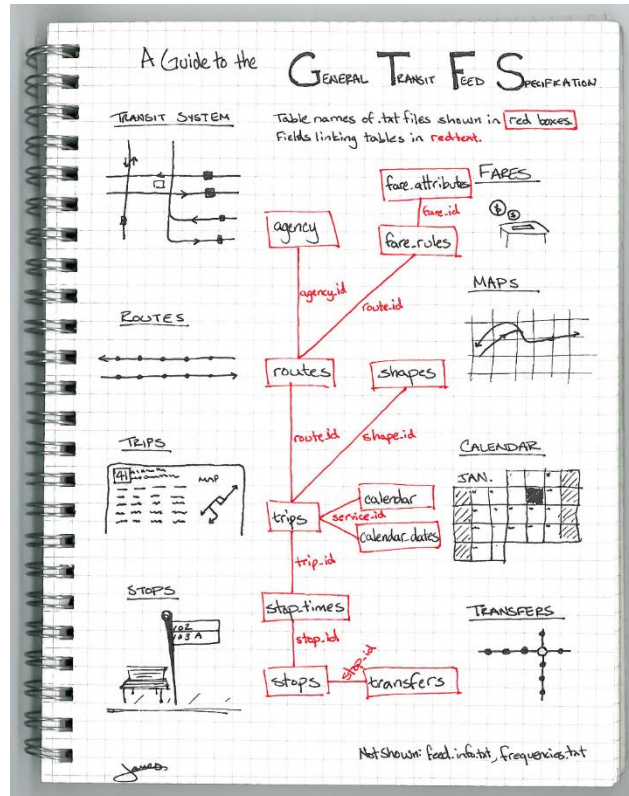 A Guide to the GENERAL TRANSIT FEED SPECIFICATION
Table names of .txt files shown in red boxes.
Fields linking tables in red text.
TRANSIT SYSTEM
fare_attributes
FARES
$ $
fare_id
agency
fare_rules
agency_id
route_id
MAPS
ROUTES
routes
shapes
route_id
shape_id
TRIPS
41
MAP
CALENDAR
JAN.
calendar
trips
service_id
calendar_dates
trip_id
STOPS
102
103 A
stop_times
TRANSFERS
stop_id
stop_id
stops
transfers
Not shown: feed_info.txt, frequencies.txt
James